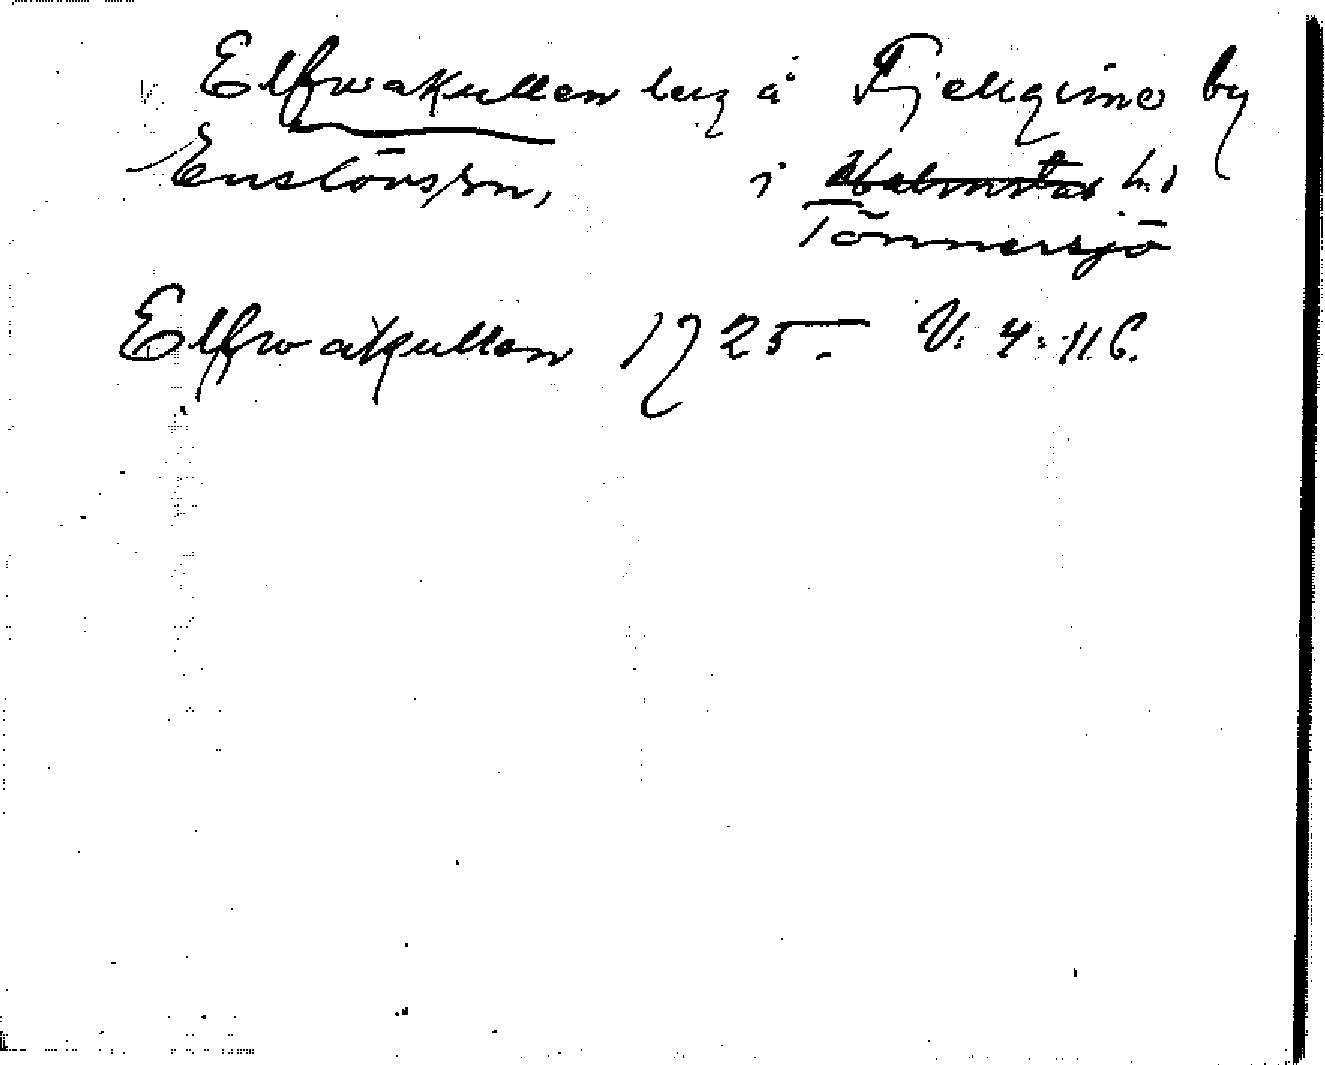 Elfwakullen leg å Fjellgime by
Enslövs sn, i Halmstad hd
Tönnersjö
Elfwakullen 1725. V. 4: 116.